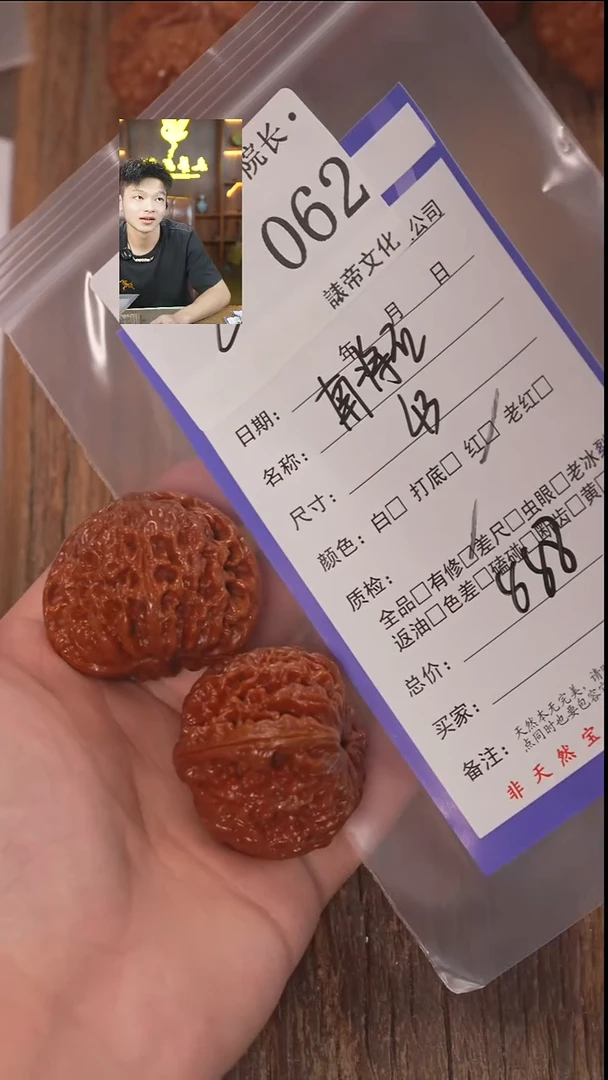 院长·
062
誐帝文化 公司
年 月 日
日期：
名称：南将石
尺寸：43
颜色：白□ 打底□ 红□ 老红□
质检：
全品□有修□差尺□虫眼□老冰裂
返油□色差□磕碰□断齿□黄
总价：888
买家：
备注：天然本无完美，请
点同时也要包容
非天然宝